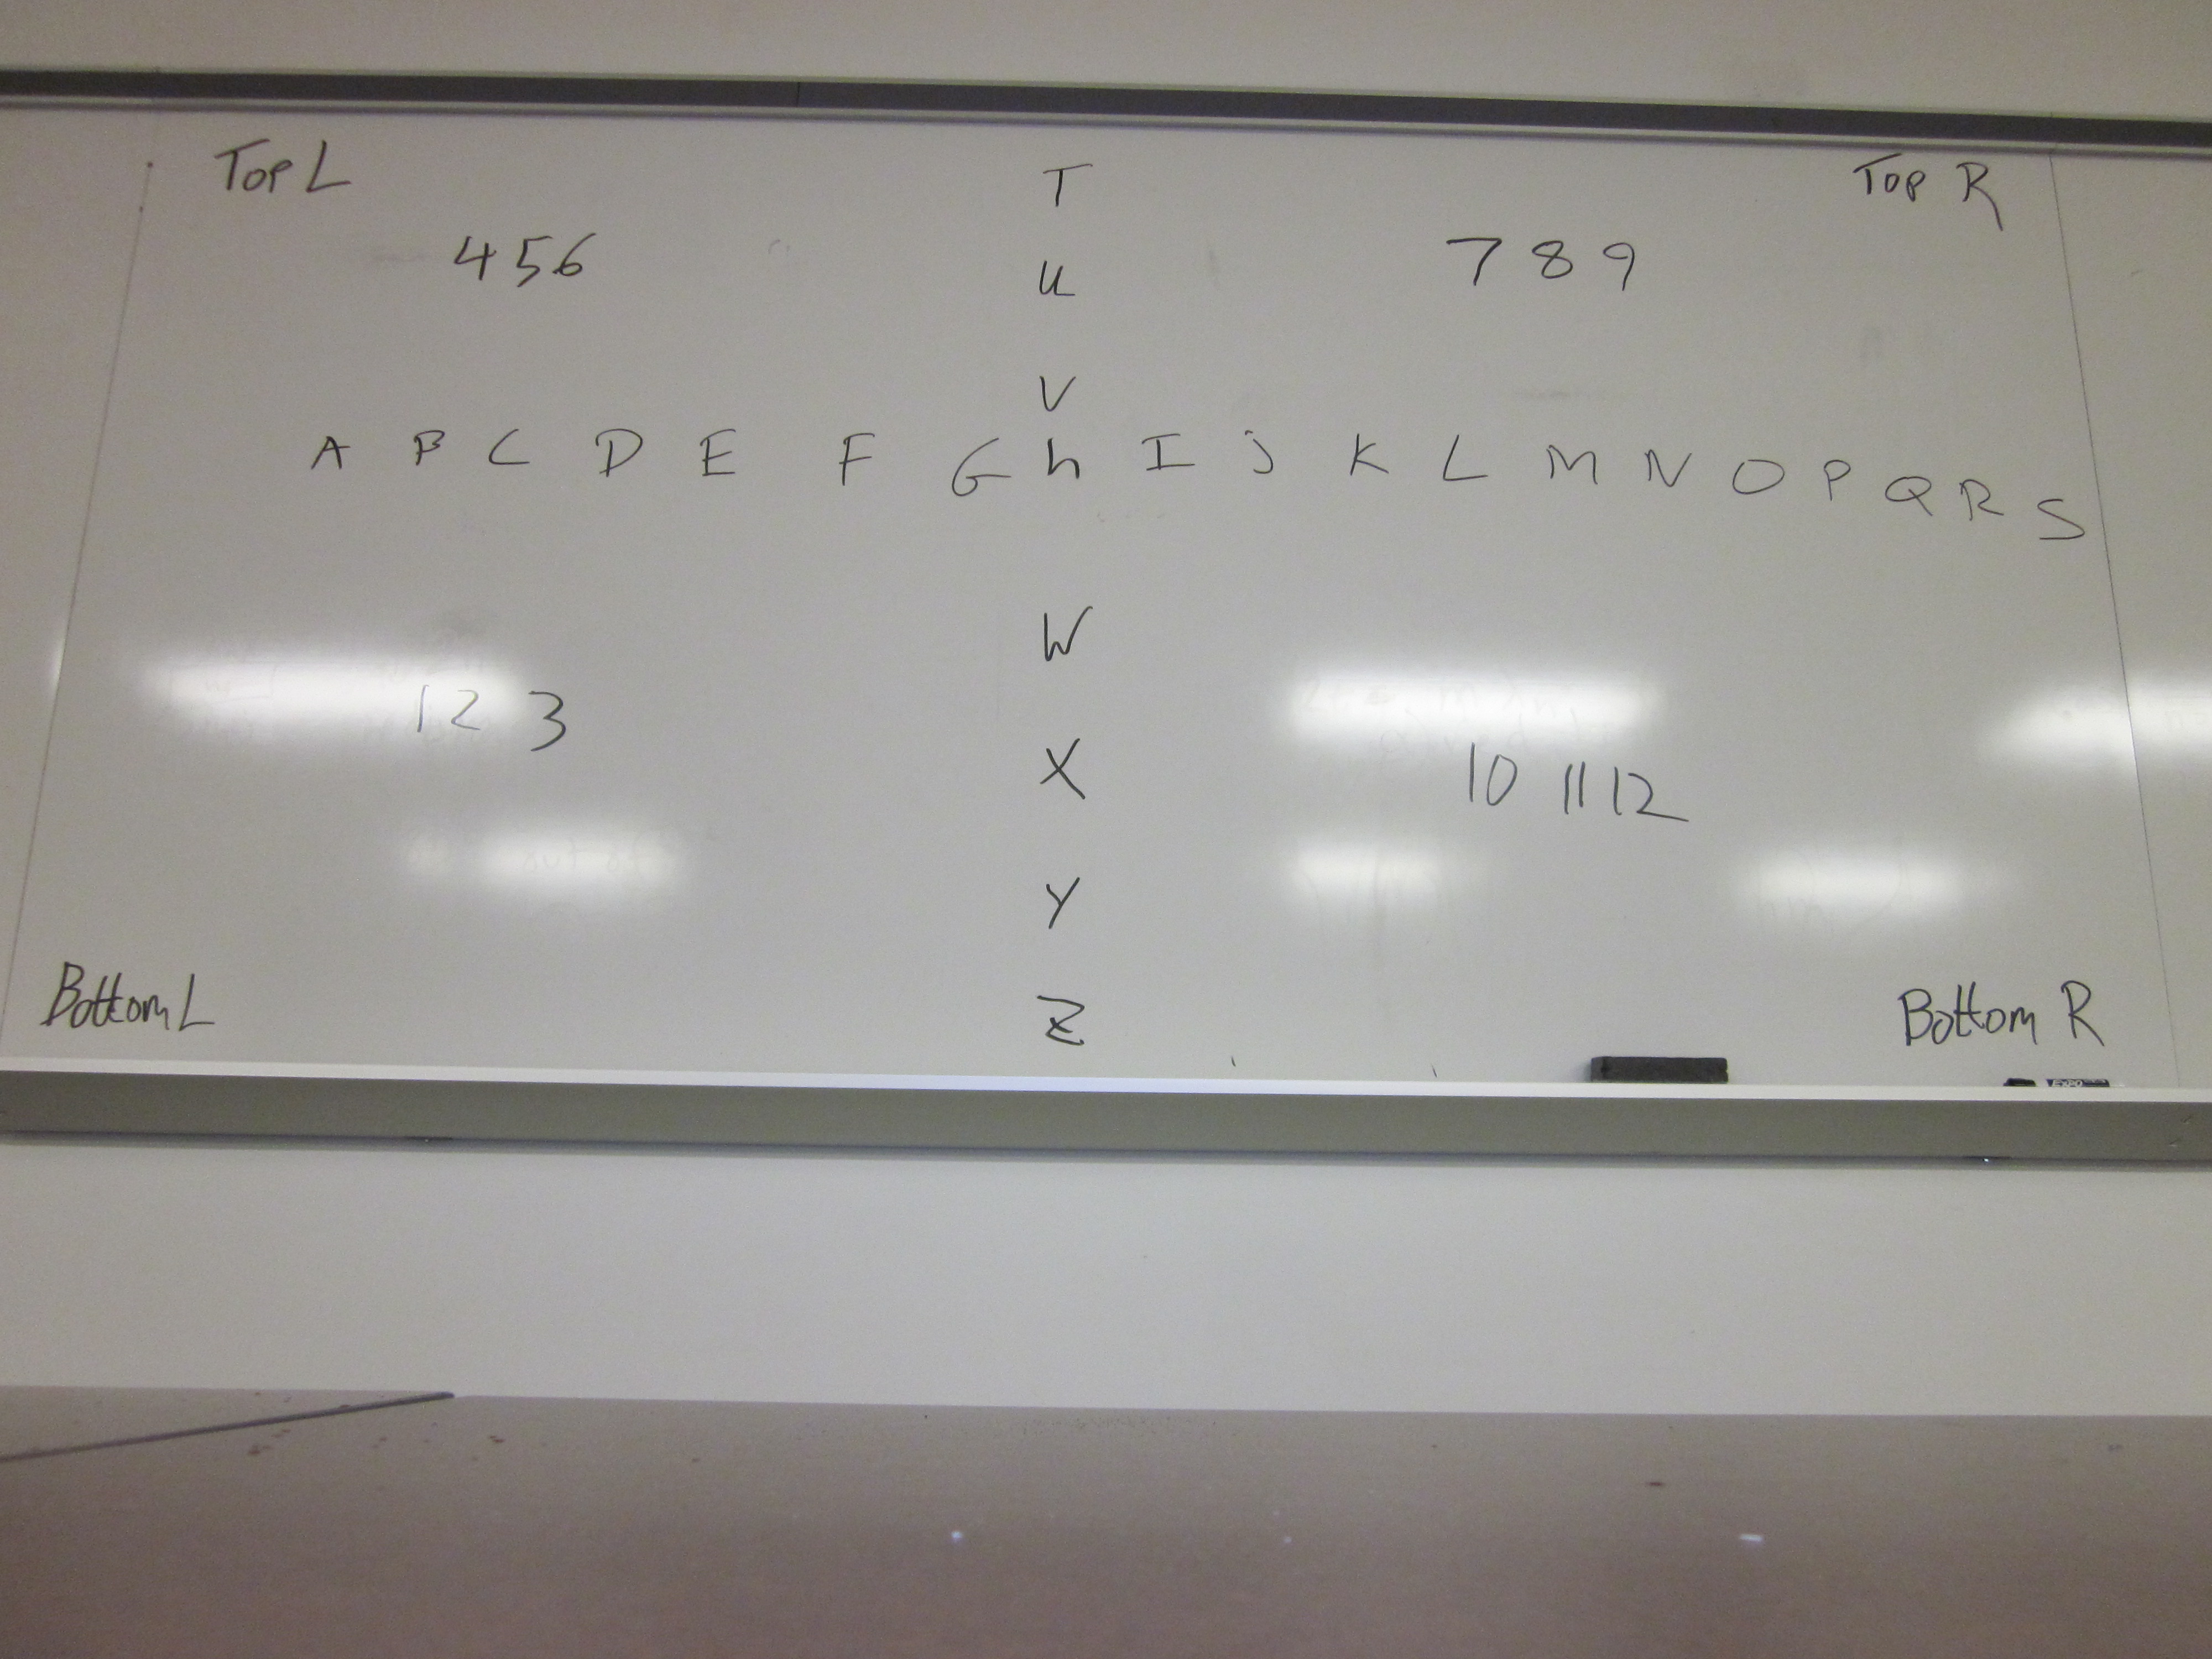 Top L
T
Top R
456
U
7 8 9
V
A B C D E F G h I J K L M N O P Q R S
W
1 2 3
X
10 11 12
Y
Bottom L
Z
Bottom R
EXPO